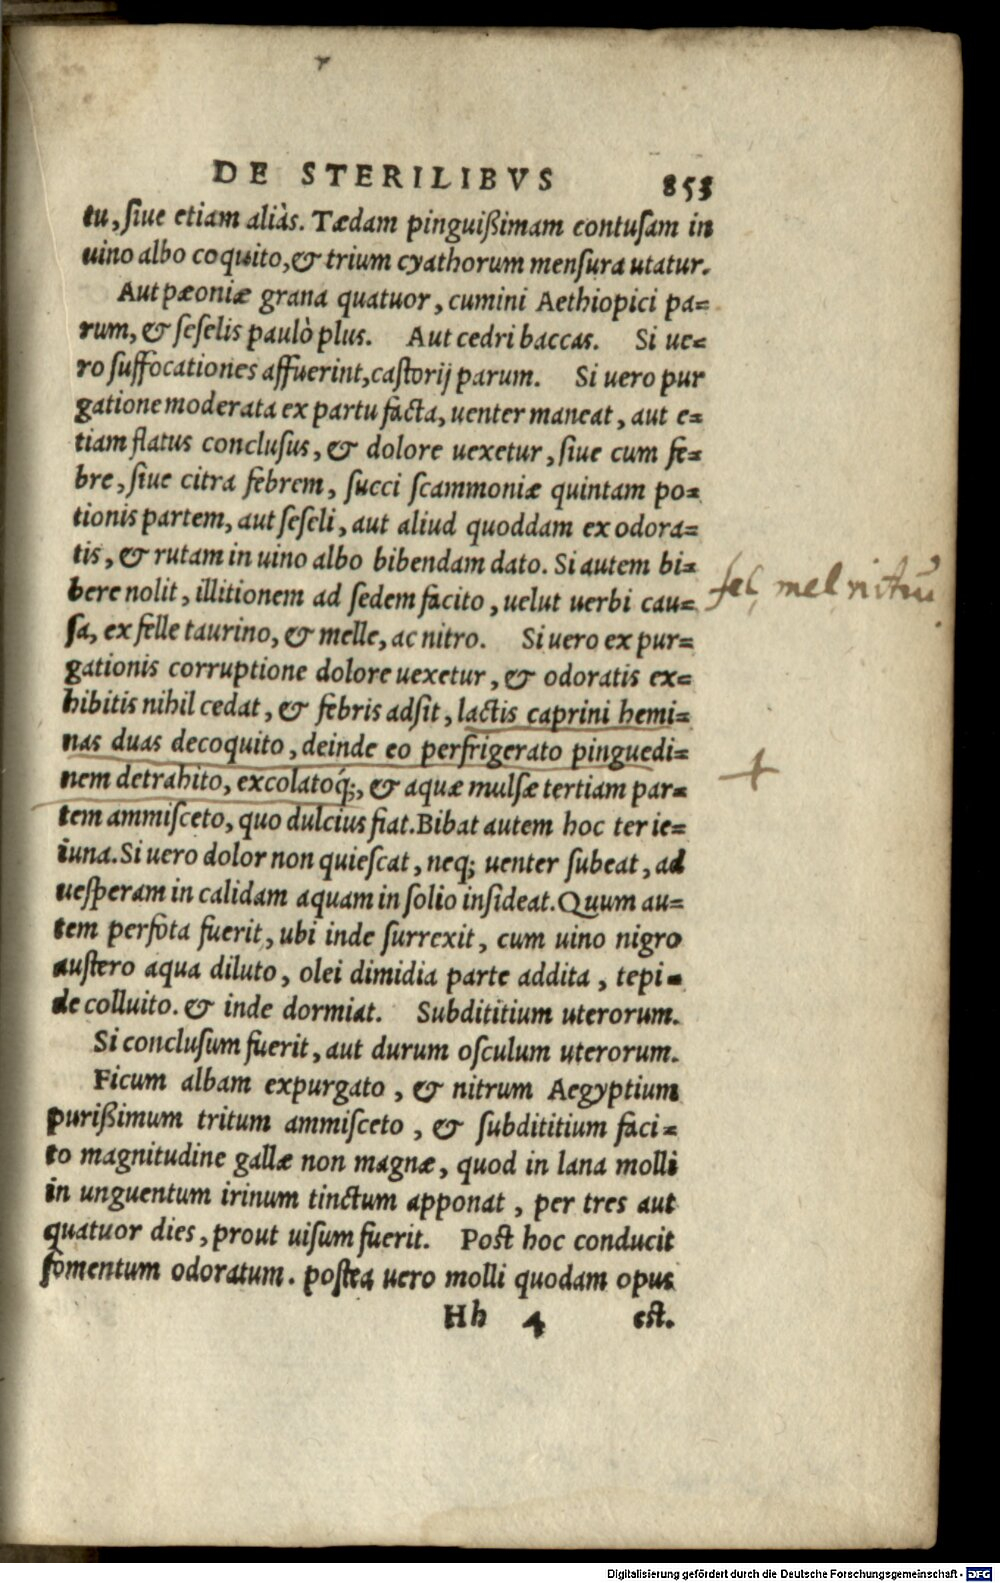 DE STERILIBVS 853
tu, ſiue etiam aliàs. Tædam pinguißimam contuſam in
uino albo coquito, & trium cyathorum menſura utatur.
Aut pæoniæ grana quatuor, cumini Aethiopici pa=
rum, & ſeſelis paulò plus. Aut cedri baccas. Si ue=
ro ſuffocationes affuerint, caſtorij parum. Si uero pur
gatione moderata ex partu facta, uenter maneat, aut e=
tiam flatus concluſus, & dolore uexetur, ſiue cum fe=
bre, ſiue citra febrem, ſucci ſcammoniæ quintam po=
tionis partem, aut ſeſeli, aut aliud quoddam ex odora=
tis, & rutam in uino albo bibendam dato. Si autem bi=
bere nolit, illitionem ad ſedem facito, uelut uerbi cau=
fel, mel, nitrū
ſa, ex felle taurino, & melle, ac nitro. Si uero ex pur=
gationis corruptione dolore uexetur, & odoratis ex=
hibitis nihil cedat, & febris adſit, lactis caprini hemi=
nas duas decoquito, deinde eo perfrigerato pinguedi=
+
nem detrahito, excolatoq́;, & aquæ mulſæ tertiam par=
tem ammiſceto, quo dulcius fiat. Bibat autem hoc ter ie=
iuna. Si uero dolor non quieſcat, neq; uenter ſubeat, ad
ueſperam in calidam aquam in ſolio inſideat. Quum au=
tem perfota fuerit, ubi inde ſurrexit, cum uino nigro
auſtero aqua diluto, olei dimidia parte addita, tepi=
de colluito. & inde dormiat. Subdititium uterorum.
Si concluſum fuerit, aut durum oſculum uterorum.
Ficum albam expurgato, & nitrum Aegyptium
purißimum tritum ammiſceto, & ſubdititium faci=
to magnitudine gallæ non magnæ, quod in lana molli
in unguentum irinum tinctum apponat, per tres aut
quatuor dies, prout uiſum fuerit. Poſt hoc conducit
fomentum odoratum. poſtea uero molli quodam opus
Hh 4 eſt.
Digitalisierung gefördert durch die Deutsche Forschungsgemeinschaft - DFG